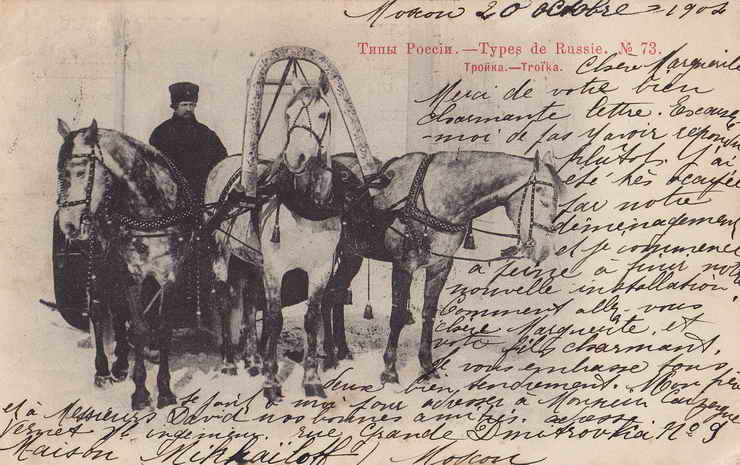 Moscou 20 octobre 1902
Типы Россіи.—Types de Russie. № 73.
Тройка.—Troïka.
Chere Marguerite
Merci de votre bien
charmante lettre. Excusez
-moi de pas y avoir repondu
plutôt. J'ai
été très occupée
par notre
déménagement
et je commence
à peine à finir notre
nouvelle installation
Comment allez-vous
chere Marguerite, et
votre fils charmant.
Je vous embrasse tous
deux bien tendrement. Mon
se font à moi pour adresser à Monsieur
et à Messieurs David nos bonnes amitiés.
Vernet ingenieur. rue Grande Dmitrovka No 9
Maison Mikhailoff Moscou